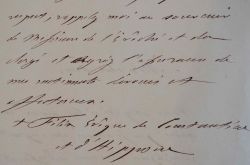 respect, rappelez moi au souvenir
de Messieurs de l'Evêché et du
clergé et agréez l'assurance de
mes sentiments dévoués et
affectueux.
+ Félix Evêque de Constantine
et d'Hippone